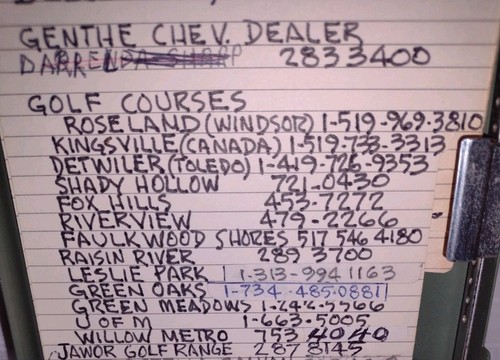 GENTHE CHEV. DEALER
DARREL 283 3400
GOLF COURSES
ROSELAND (WINDSOR) 1-519-969-3810
KINGSVILLE (CANADA) 1-519-733-3313
DETWILER (TOLEDO) 1-419-726-9353
SHADY HOLLOW 721-0430
FOX HILLS 453-7272
RIVERVIEW 479-2266
FAULKWOOD SHORES 517 546 4180
RAISIN RIVER 289 3700
LESLIE PARK 1-313-994 1163
GREEN OAKS 1-734-485-0881
GREEN MEADOWS
U OF M 1-663-5005
WILLOW METRO 753 4040
JAWOR GOLF RANGE 287 8145